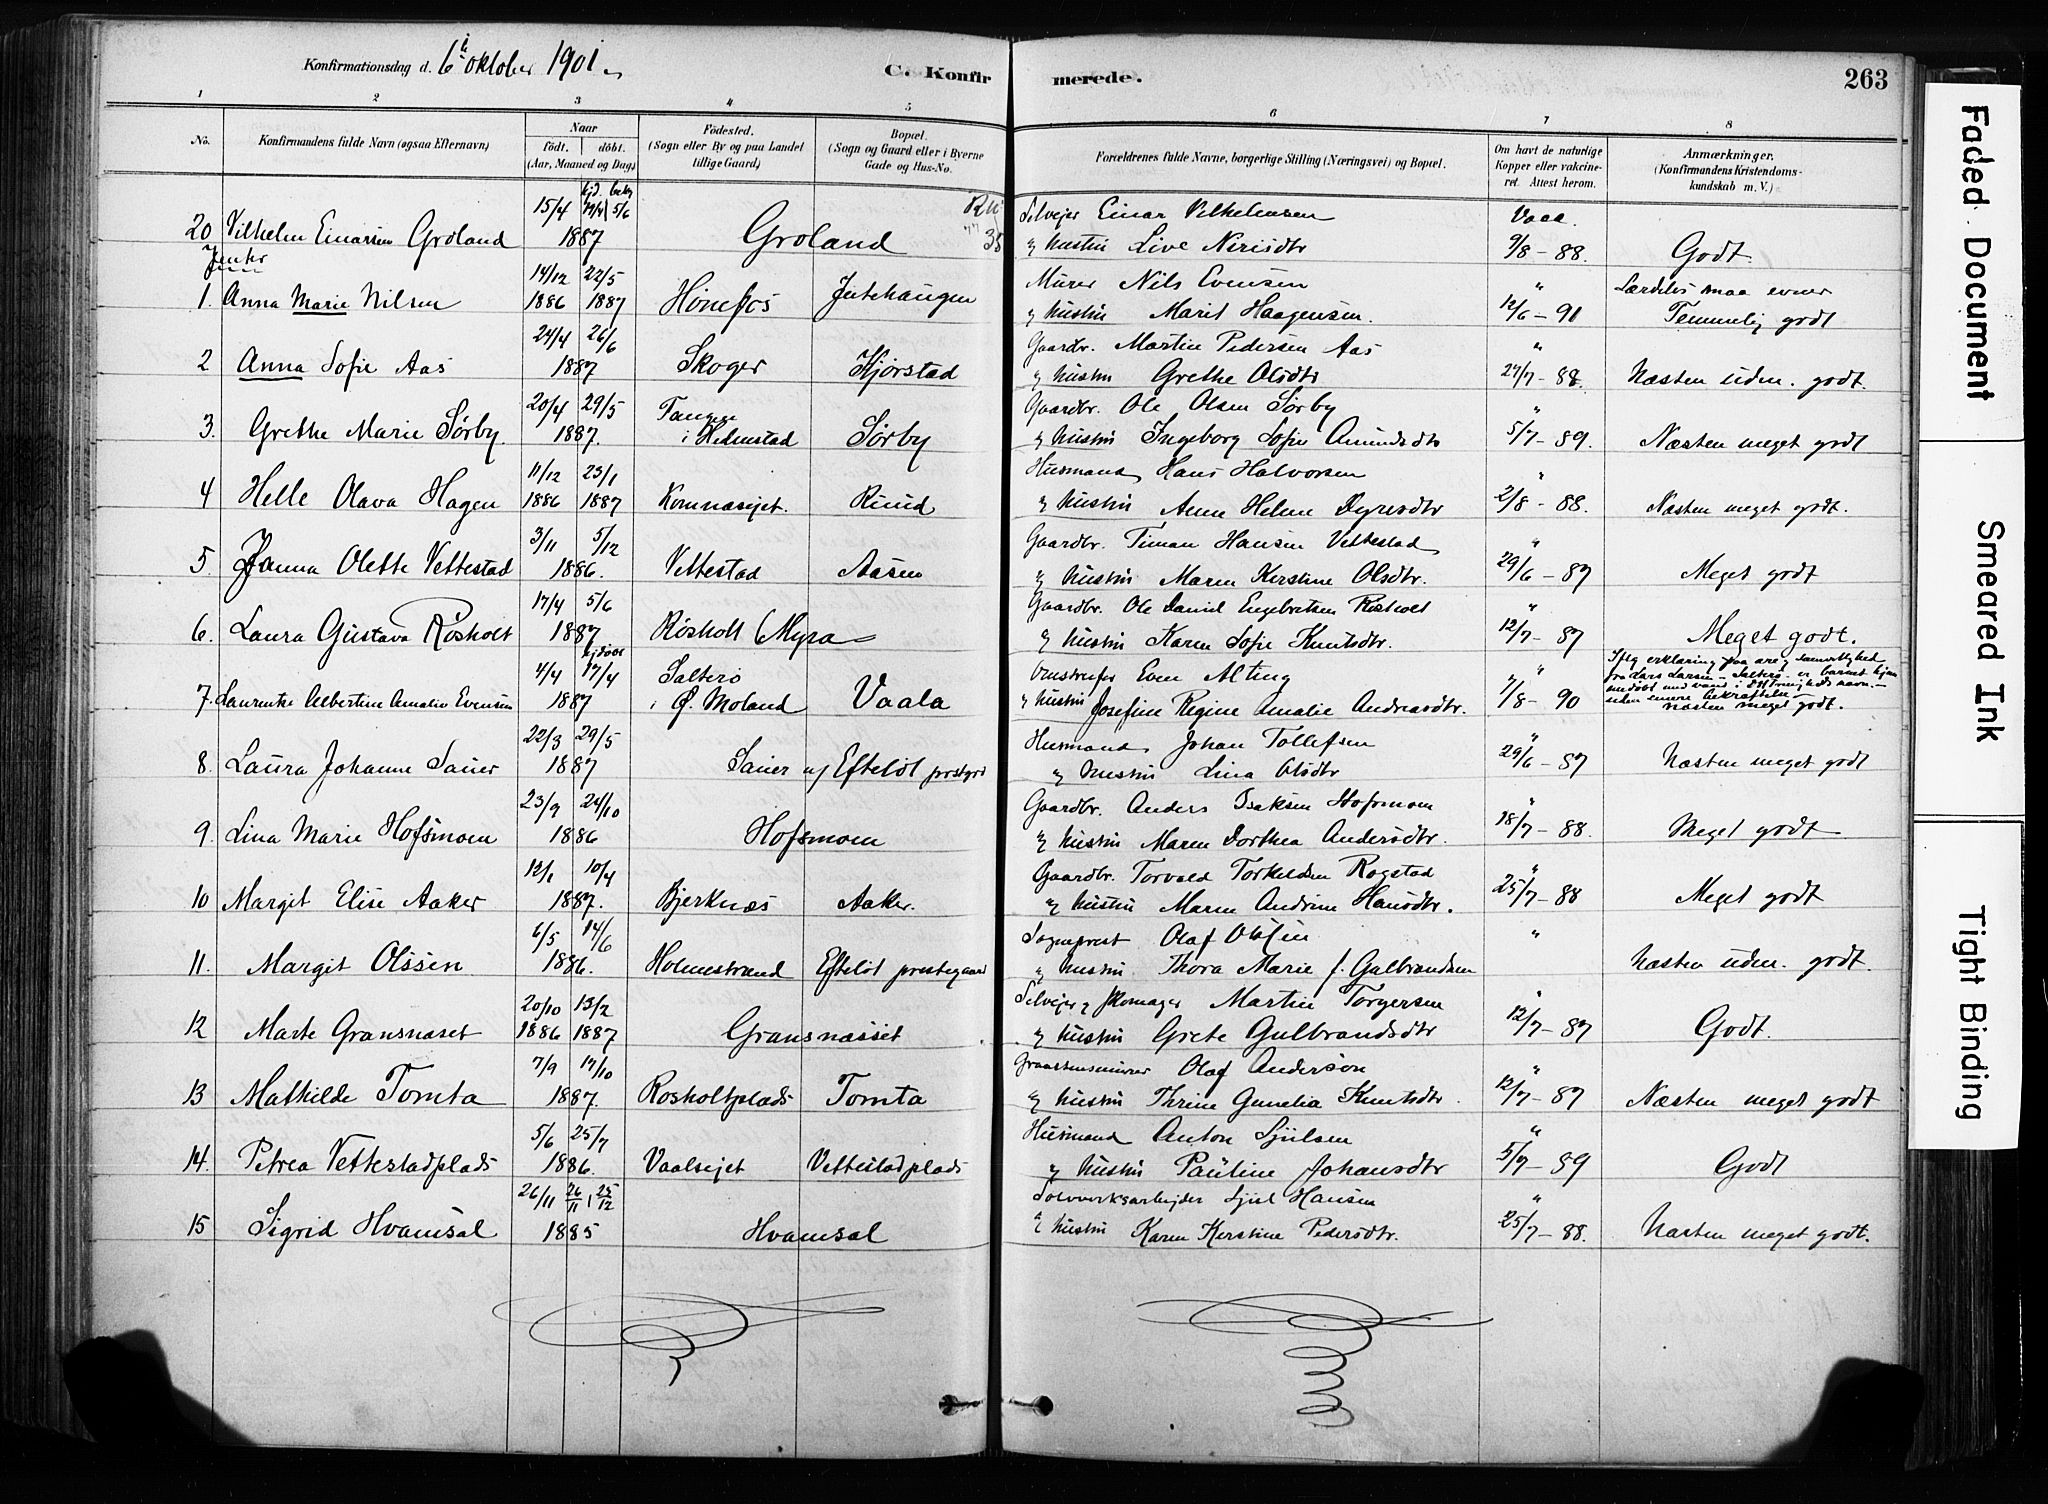 Konfirmationsdag d. 6te oktober 1901.
C. Konfirmerede.
263
1 2 3 4 5 6 7 8
No. Konfirmandens fulde Navn (ogsaa Efternavn) Naar født. døbt. (Aar, Maaned og Dag) Fødested. (Sogn eller By og paa Landet tillige Gaard) Bopæl. (Sogn og Gaard eller i Byerne Gade og Hus-No. Forældrenes fulde Navne, borgerlige Stilling (Næringsvei) og Bopæl. Om havt de naturlige Kopper eller vakcineret. Attest herom. Anmærkninger. (Konfirmandens Kristendomskundskab m. V.)
15/4 hjd. 5/6 Selvejer Einar Vilhelmsen Vacc.
20 Vilhelm Einarsen Groland 1887 Groland & hustru Live Nirisdtr 9/8 - 88. Godt
14/12 22/5 Murer Nils Evensen " Særdeles smaa evner
1. Anna Marie Nilsen 1886 1887 Hønefos Jutehaugen & hustru Marit Haagensen. 12/6 - 91 Temmelig godt
24/4 26/6 Gaardbr. Martin Pedersen Aas "
2 Anna Sofie Aas 1887 Skoger Hjørstad & hustru Grethe Olsdtr 27/7 - 88. Næsten udm. godt.
20/4 29/5 Tangen Gaardbr. Ole Olsen Sørby "
3. Grethe Marie Sørby. 1887. i Hedenstad Sørby & hustru Ingeborg Sofie Amundsdtr 5/7 - 89. Næsten meget godt
11/12 23/1 Husmand Hans Halvorsen "
4 Helle Olava Hagen 1886 1887 Komnæsejet. Ruud & hustru Anne Helene Dyresdtr 2/8 - 88. Næsten meget godt.
3/11 5/12 Gaardbr. Timan Hansen Vettestad "
5. Janna Olette Vettestad 1886. Vettestad Aasen & hustru Maren Kirstine Olsdtr. 29/6 - 87 Meget godt
17/4 5/6 Gaardbr. Ole Daniel Engebretsen Røsholt "
6. Laura Gustava Røsholt 1887 Røsholt Myra & hustru Karen Sofie Knutsdtr. 12/7 - 87 Meget godt.
4/4 17/4 Salterø Even Alting "
7. Laurentse Albertine Amalie Evensen 1887 i Ø. Moland Vaala & hustru Josefine Regine Amalie Andreasdtr. 7/8 - 90 næsten meget godt.
22/3 29/5 Husmand Johan Tollefsen "
8. Laura Johanne Sauer 1887 Sauer u/ Efteløt prestgrd & hustru Lina Olsdtr 29/6 - 87 Næsten meget godt
23/9 24/10 Gaardbr. Anders Isaksen Hofsmoen "
9. Lina Marie Hofsmoen 1886 Hofsmoen & hustru Maren Dorthea Andersdtr. 18/7 - 88. Meget godt
12/1 10/4 Gaardbr. Torvald Torkildsen Rogstad "
10 Margit Elise Aaker 1887. Bjerknæs Aaker. & hustru Maren Andrine Hansdtr. 25/7 - 88 Meget godt
6/5 14/6 Sogneprest Olaf Olssen "
11. Margit Olssen 1886. Holmestrand Efteløt prestegaard & hustru. Thora Marie f. Gulbrandsen Næsten udm. godt.
20/10 13/2 Selvejer & skomager Martin Torgersen "
12 Marte Gransnæset 1886 1887 Gransnæsset & hustru Grete Gulbrandsdtr 12/7 - 87 Godt.
7/9 17/10 Graastensmurer Olaf Anderson "
13 Mathilde Tomta 1887. Rosholtplads Tomta & hustru Thrine Gunelia Knutsdtr. 12/7 - 87 Næsten meget godt
5/6 25/7 Husmand Anton Sjulsen "
14. Petrea Vettestadplads 1886. Vaalsejet Vettestadplads & hustru Pauline Johansdtr 5/7 - 89 Godt
26/11 26/11 25/12 Sølvverksarbejder Sjul Hansen "
15 Sigrid Hvamsal 1885 Hvamsal & hustru Karen Kirstine Pedersdtr. 25/7 - 88. Næsten meget godt.
Faded Document
Smeared Ink
Tight Binding